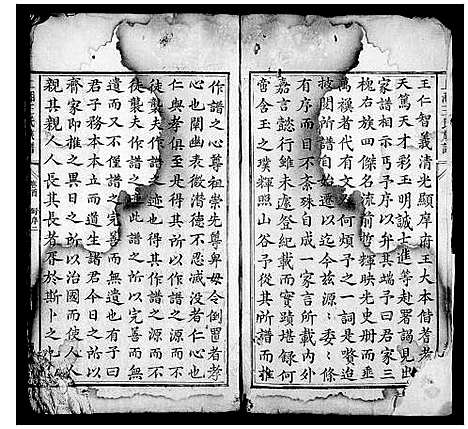 王仁智義清光顯犀府王大本偕者考
天篤天才彩玉明誠士進等赴署謁見出
家譜相示丐予序以弁其端予曰君家三
槐右族四傑名流前哲輝映光史册而垂
萬禩者代有文人何煩予之一詞是贅迨
披閱所自始遠以迄今茲源委條
序而目不紊殊自成一家言所載內外
嘉言懿行雖未盡登紀載而實蹟堪錄何
啻含王之璞輝照山谷予從其所譜而推
作譜之心尊祖崇先尊卑毋令倒置者孝
心也闡幽表微潛德不忍滅没者仁心也
仁與孝俱至是得其所以作譜之源而不
徒襲夫作譜之迹也得其作譜之源而不
徒襲作譜之迹此譜之所以完善而無
遺而又不僅譜之完善而無遺也有子曰
君子務本本立而道生諸君今日之所以
齊家即推之異日之所以治國而使人人
親其親人人長其長者胥於斯卜之中
卷首 序二